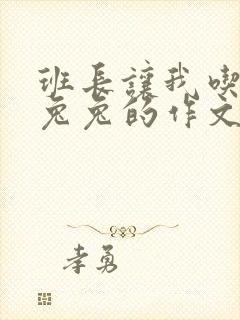 班长让我喫
兔兔的作文
李勇